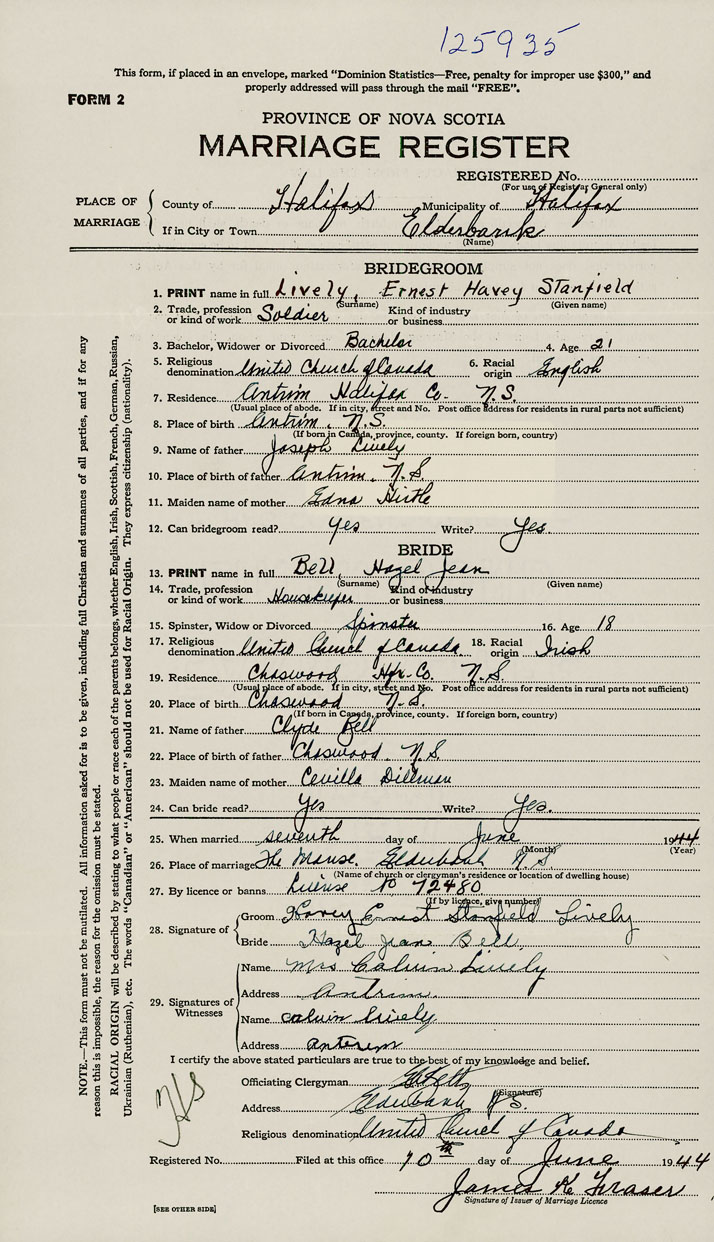 125935
This form, if placed in an envelope, marked "Dominion Statistics—Free, penalty for improper use $300," and
properly addressed will pass through the mail "FREE".
FORM 2
PROVINCE OF NOVA SCOTIA
MARRIAGE REGISTER
REGISTERED No.
(For use of Registrar General only)
PLACE OF MARRIAGE
County of Halifax Municipality of Halifax
If in City or Town Elderbank
(Name)
BRIDEGROOM
1. PRINT name in full Lively, Ernest Havey Stanfield
(Surname) (Given name)
2. Trade, profession or kind of work Soldier Kind of industry or business
3. Bachelor, Widower or Divorced Bachelor 4. Age 21
5. Religious denomination United Church of Canada 6. Racial origin English
7. Residence Antrim Halifax Co. N.S.
(Usual place of abode. If in city, street and No. Post office address for residents in rural parts not sufficient)
8. Place of birth Antrim, N.S.
(If born in Canada, province, county. If foreign born, country)
9. Name of father Joseph Lively
10. Place of birth of father Antrim, N.S
11. Maiden name of mother Edna Hirtle
12. Can bridegroom read? yes Write? Yes.
BRIDE
13. PRINT name in full Bell, Hazel Jean
(Surname) (Given name)
14. Trade, profession or kind of work Housekeeper Kind of industry or business
15. Spinster, Widow or Divorced Spinster 16. Age 18
17. Religious denomination United Church of Canada 18. Racial origin Irish
19. Residence Chaswood Hfx. Co. N.S.
(Usual place of abode. If in city, street and No. Post office address for residents in rural parts not sufficient)
20. Place of birth Chaswood N.S.
(If born in Canada, province, county. If foreign born, country)
21. Name of father Clyde Bell
22. Place of birth of father Chaswood, N.S
23. Maiden name of mother Cevilla Dillman
24. Can bride read? Yes Write? Yes.
25. When married seventh day of June 1944
(Month) (Year)
26. Place of marriage The Manse, Elderbank N S
(Name of church or clergyman's residence or location of dwelling house)
27. By licence or banns License No 72480
(If by licence, give number)
28. Signature of
Groom Havey Ernest Stanfield Lively
Bride Hazel Jean Bell.
29. Signatures of Witnesses
Name Mrs Calvin Lively
Address Antrim.
Name Calvin Lively
Address Antrim
I certify the above stated particulars are true to the best of my knowledge and belief.
Officiating Clergyman
(Signature)
Address Elderbank N.S.
Religious denomination United Church of Canada
Registered No. Filed at this office 10th day of June 1944
James K Fraser
Signature of Issuer of Marriage Licence
[SEE OTHER SIDE]
NOTE.—This form must not be mutilated. All information asked for is to be given, including full Christian and surnames of all parties, and if for any
reason this is impossible, the reason for the omission must be stated.
RACIAL ORIGIN will be described by stating to what people or race each of the parents belongs, whether English, Irish, Scottish, French, German, Russian,
Ukrainian (Ruthenian), etc. The words "Canadian" or "American" should not be used for Racial Origin. They express citizenship (nationality).